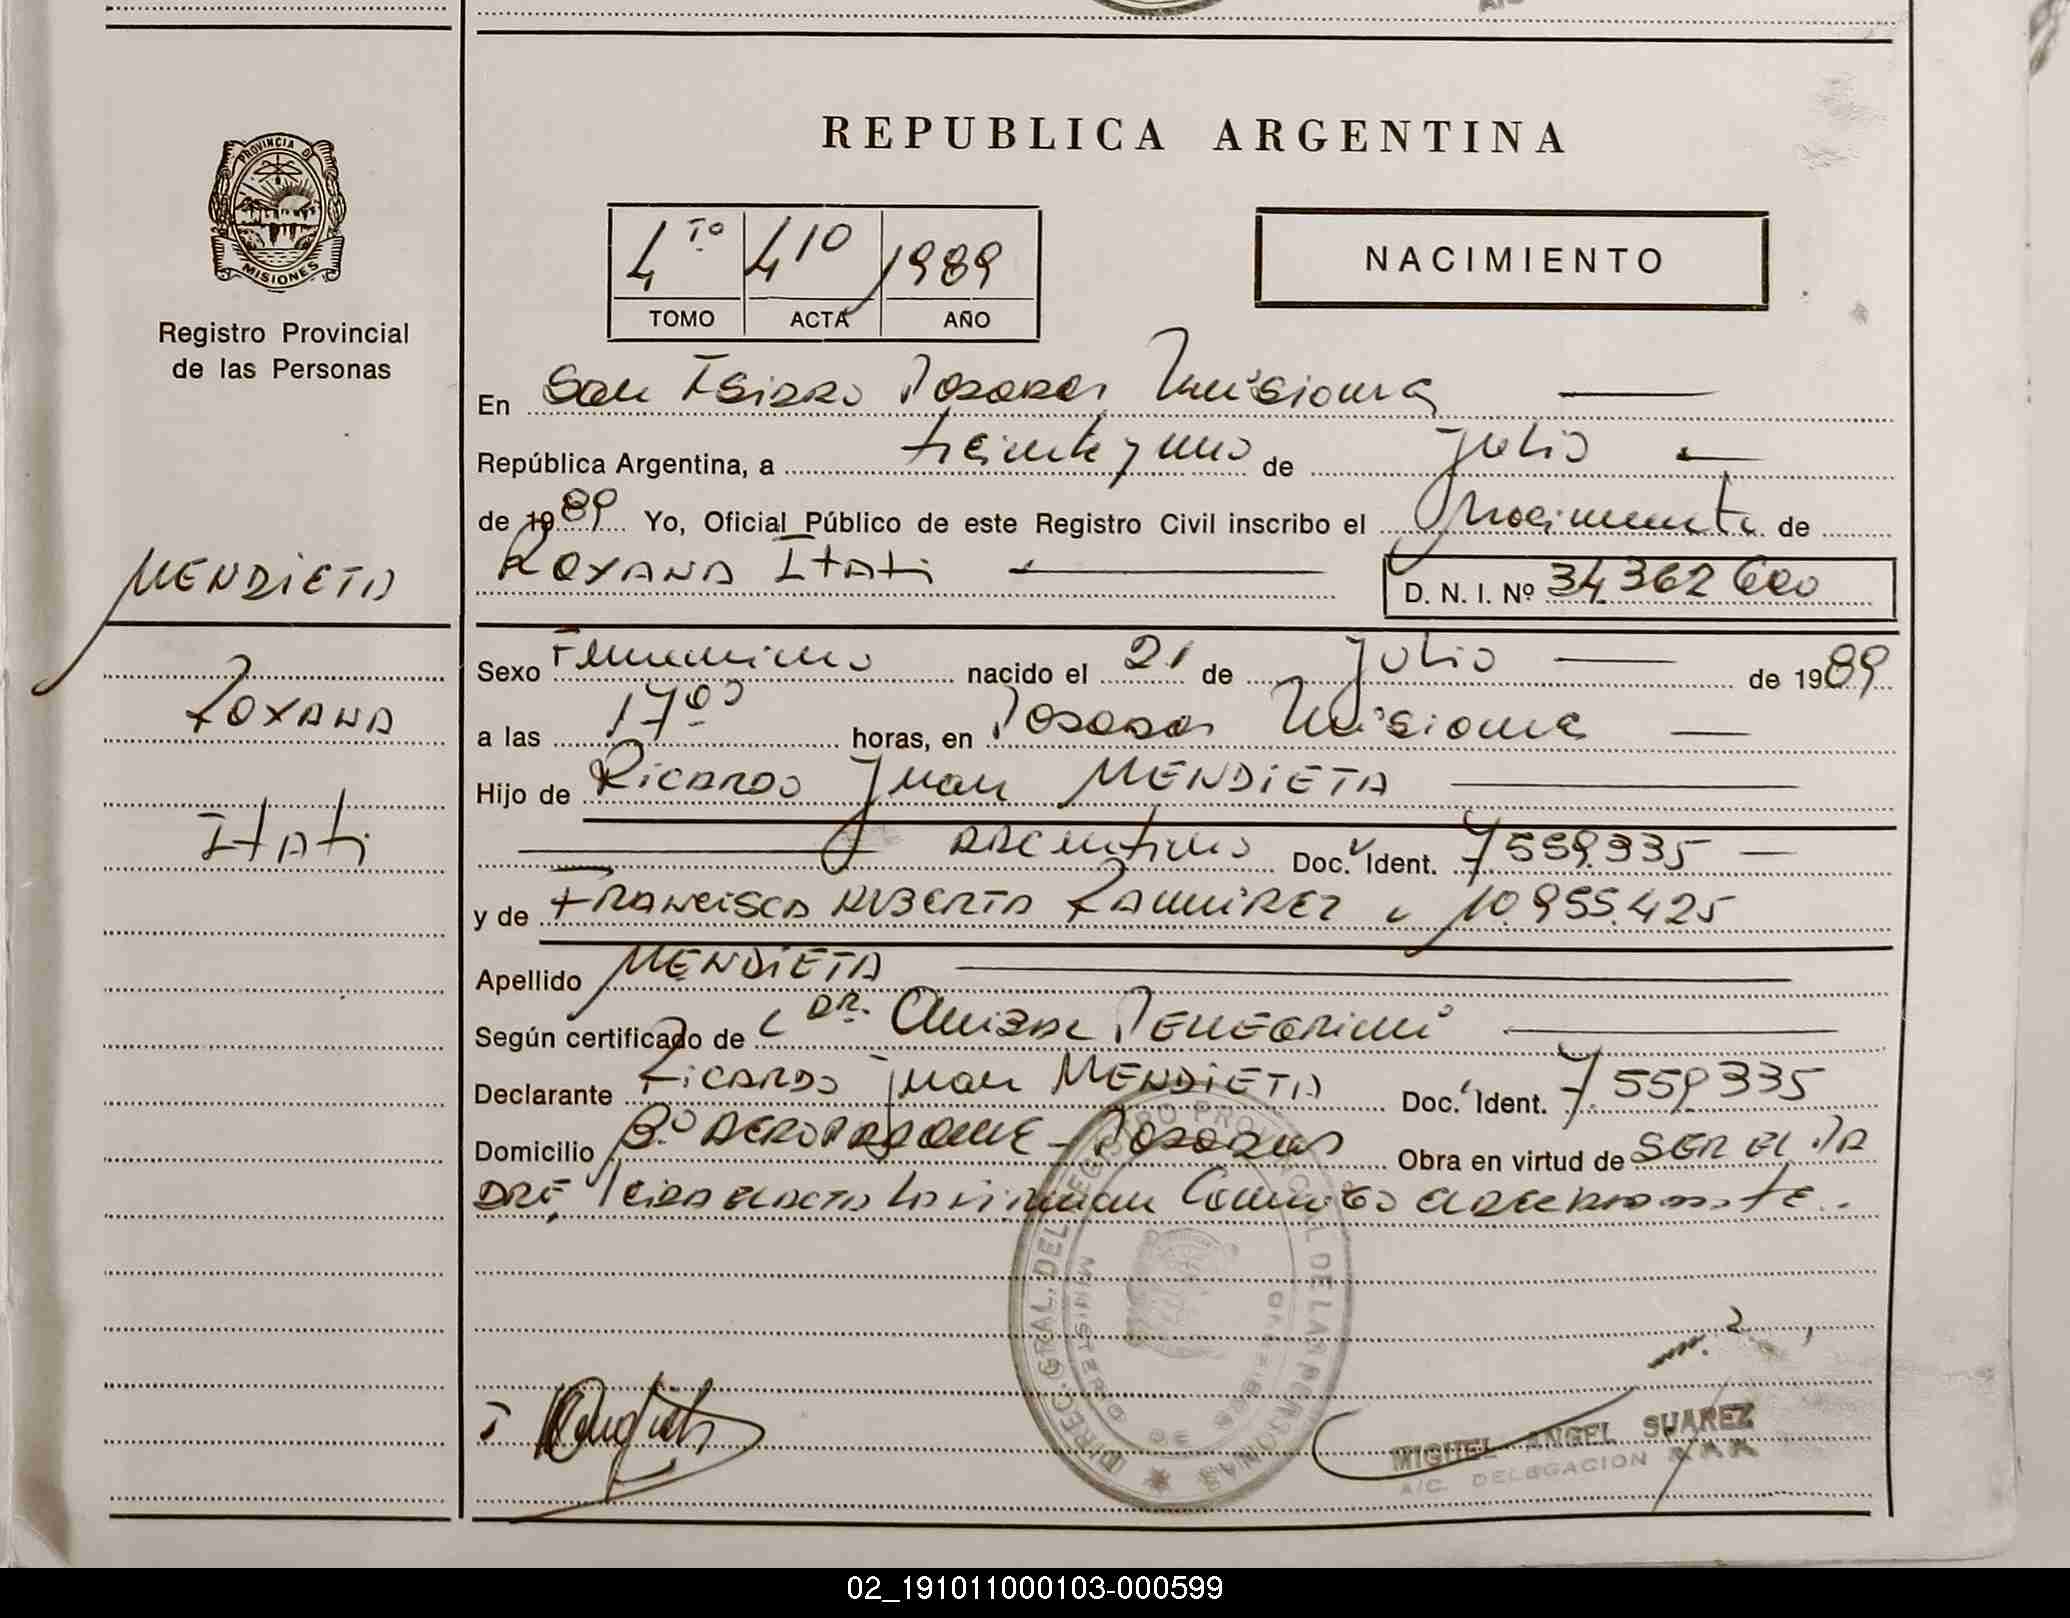 REPUBLICA ARGENTINA
PROVINCIA DE
MISIONES
Registro Provincial
de las Personas
4 To 410 1989
TOMO ACTA AÑO
NACIMIENTO
En San Isidro Posadas Misiones
República Argentina, a treinta y uno de Julio
de 1989 Yo, Oficial Público de este Registro Civil inscribo el Nacimiento de
Roxana Itati
D. N. I. Nº 34.362.600
MENDIETA
Roxana
Itati
Sexo Femenino nacido el 21 de Julio de 1989
a las 17 00 horas, en Posadas Misiones
Hijo de Ricardo Juan MENDIETA
argentino Doc. Ident. 7.559.335
y de Francisca Ruberta Ramirez 10.955.425
Apellido MENDIETA
Según certificado de Dr.
Declarante Ricardo Juan MENDIETA Doc. Ident. 7.559.335
Domicilio Bº Posadas Obra en virtud de SER EL PA
DRE, Leida el acta la firman conmigo el declarante.
DIREC. GRAL. DEL REGISTRO PROVINCIAL DE LAS PERSONAS
MINISTERIO DE GOBIERNO
MIGUEL ANGEL SUAREZ
A/C. DELEGACION
02_191011000103-000599